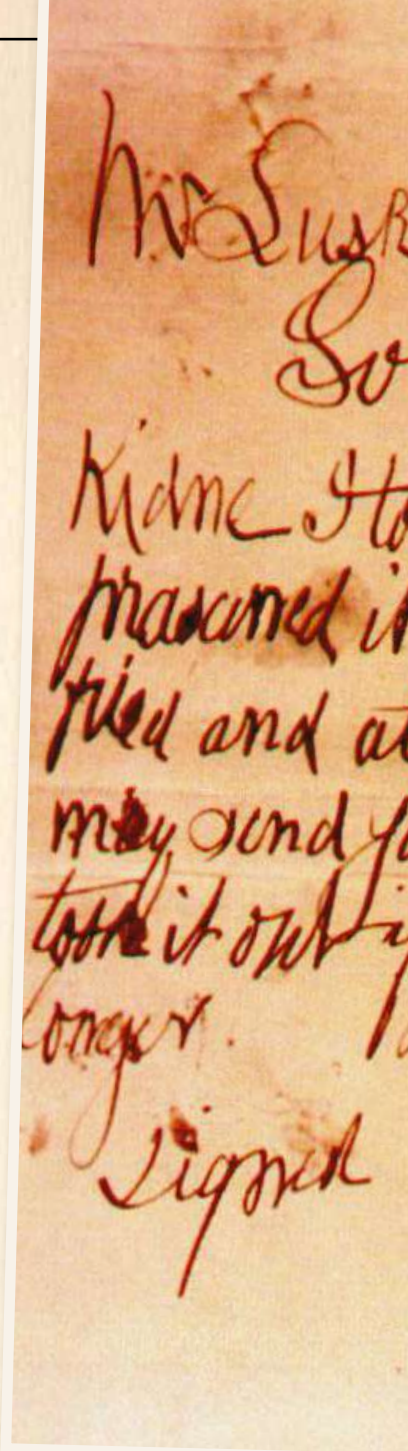 Mr Lusk
So
Kidne I to
prasarved it
fried and at
may send yo
took it out if
longer.
signed